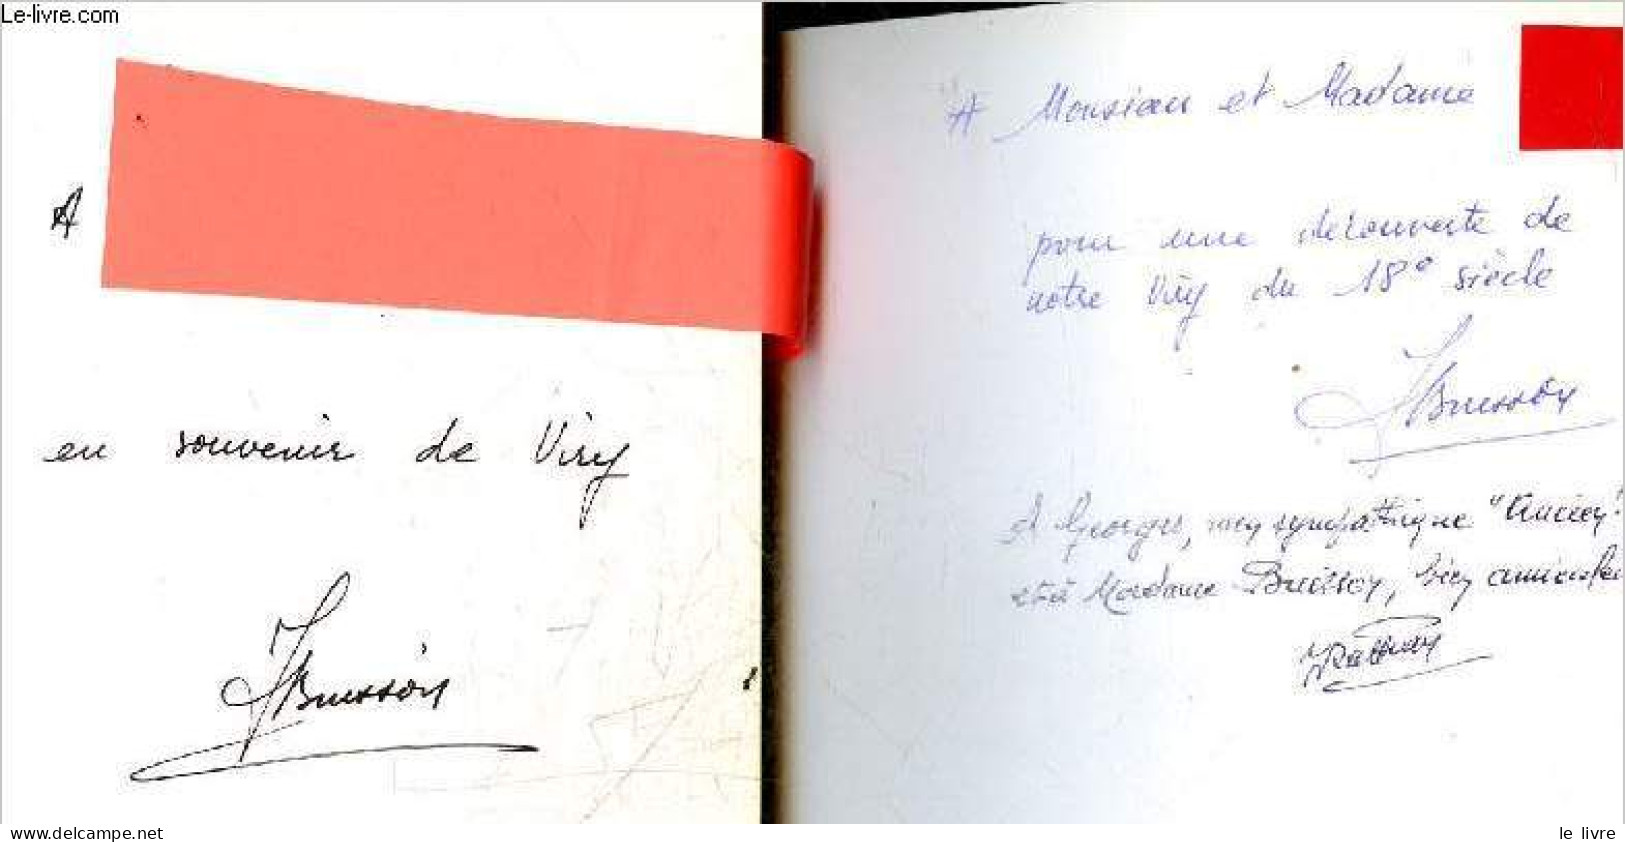 Le-livre.com
A
en souvenir de Viry
JBuisson
A Monsieur et Madame
pour une découverte de
notre Viry du 18e siècle
JBuisson
A Georges, mon sympathique "Ancien"
et à Madame Buisson, bien amicale
www.delcampe.net
le livre